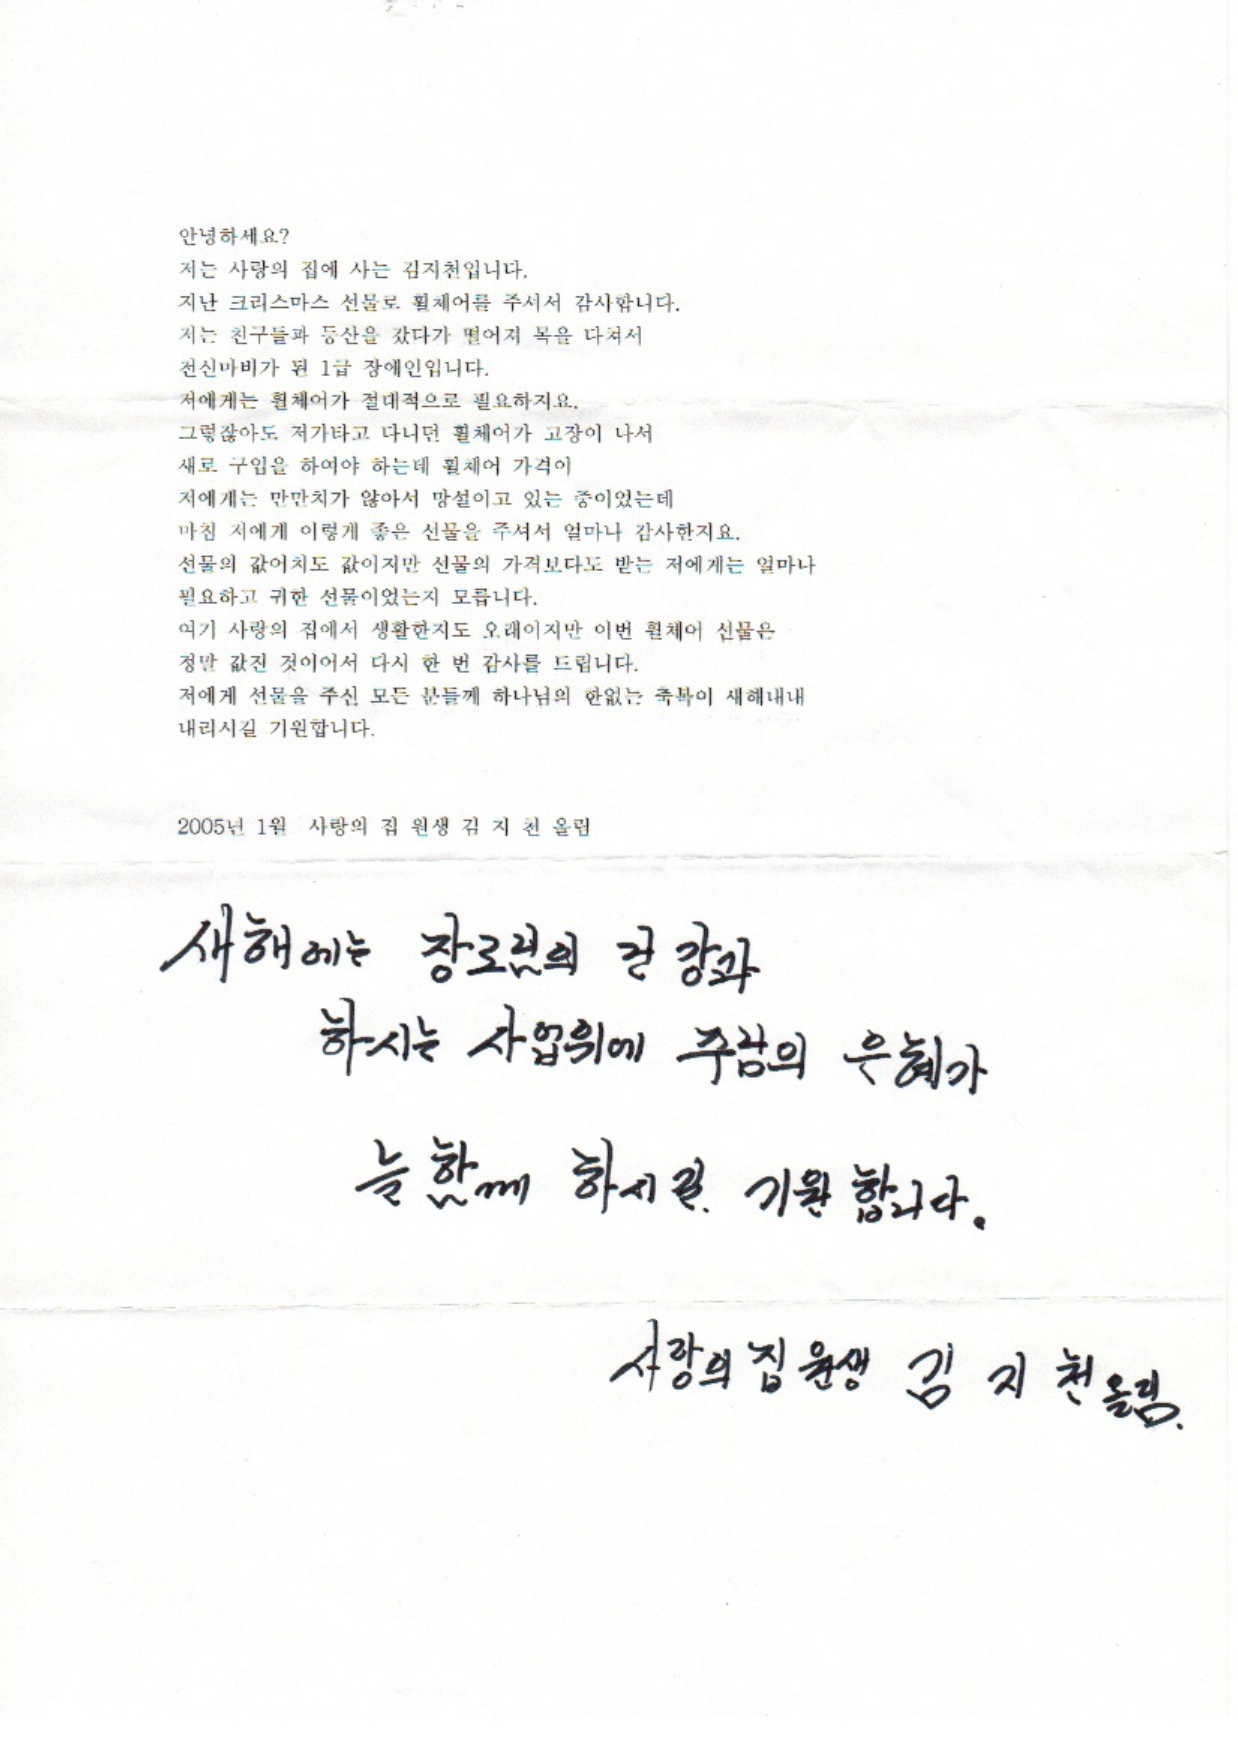 안녕하세요?
저는 사랑의 집에 사는 김지천입니다.
지난 크리스마스 선물로 휠체어를 주셔서 감사합니다.
저는 친구들과 등산을 갔다가 떨어져 목을 다쳐서
전신마비가 된 1급 장애인입니다.
저에게는 휠체어가 절대적으로 필요하지요.
그렇잖아도 저가타고 다니던 휠체어가 고장이 나서
새로 구입을 하여야 하는데 휠체어 가격이
저에게는 만만치가 않아서 망설이고 있는 중이었는데
마침 저에게 이렇게 좋은 선물을 주셔서 얼마나 감사한지요.
선물의 값어치도 값이지만 선물의 가격보다도 받는 저에게는 얼마나
필요하고 귀한 선물이었는지 모릅니다.
여기 사랑의 집에서 생활한지도 오래이지만 이번 휠체어 선물은
정말 값진 것이어서 다시 한 번 감사를 드립니다.
저에게 선물을 주신 모든 분들께 하나님의 한없는 축복이 새해내내
내리시길 기원합니다.
2005년 1월 사랑의 집 원생 김 지 천 올림
새해에는 장로님의 건강과
하시는 사업위에 주님의 은혜가
늘 함께 하시길. 기원 합니다.
사랑의집 원생 김 지 천 올림.